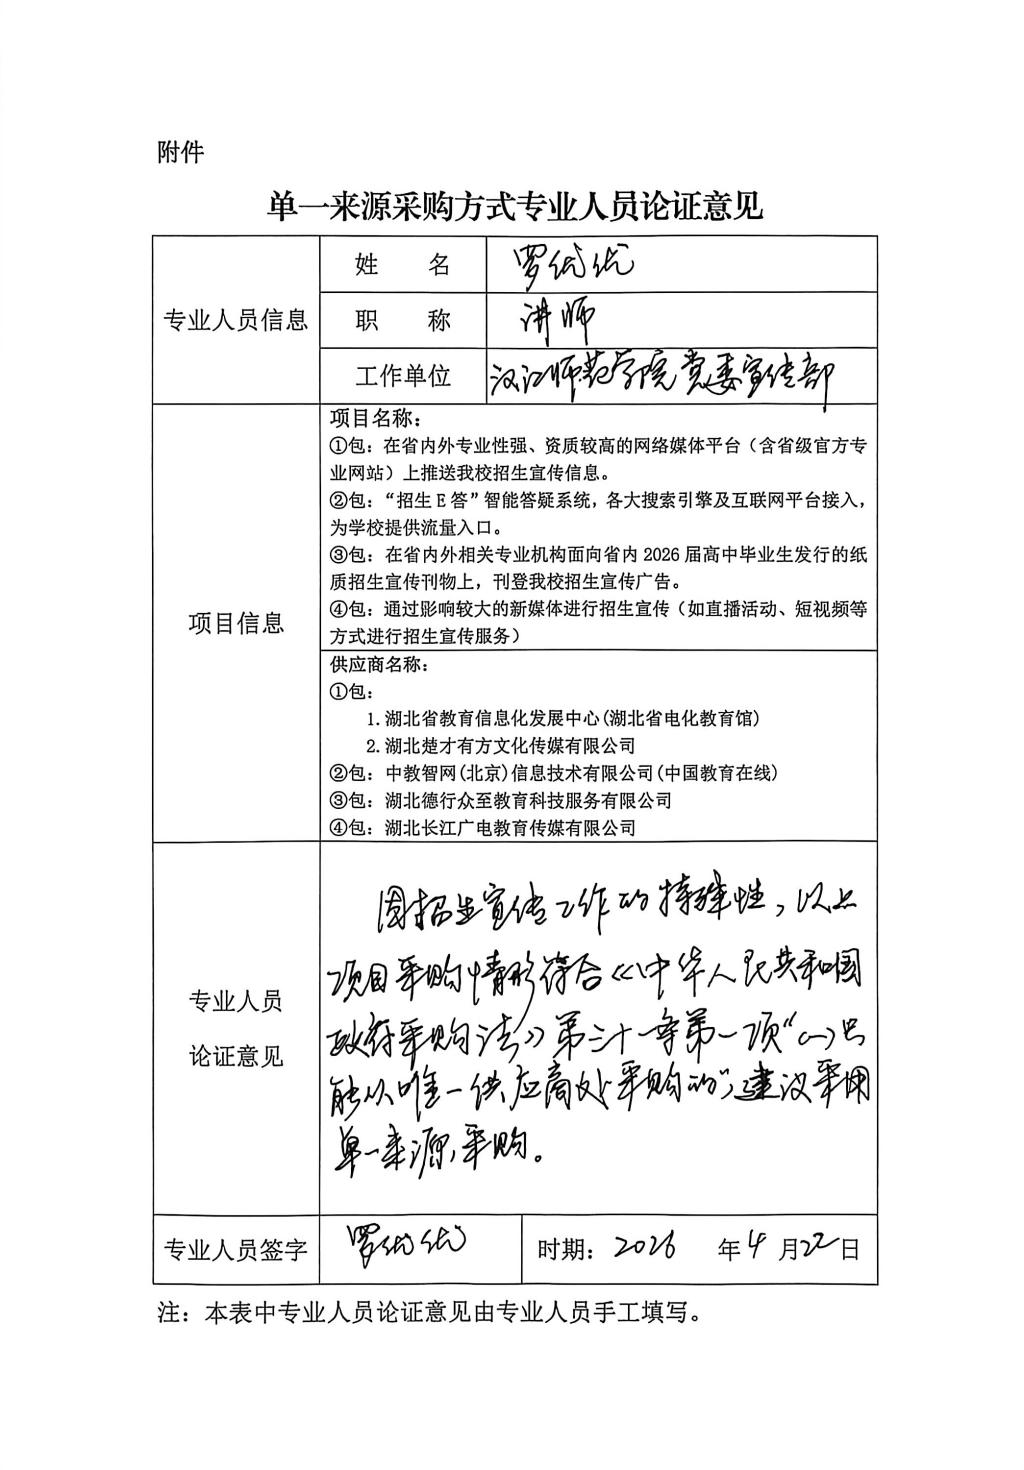 附件
单一来源采购方式专业人员论证意见
专业人员信息
姓 名 罗优优
职 称 讲师
工作单位 汉江师范学院党委宣传部
项目信息
项目名称：
①包：在省内外专业性强、资质较高的网络媒体平台（含省级官方专
业网站）上推送我校招生宣传信息。
②包：“招生 E 答”智能答疑系统，各大搜索引擎及互联网平台接入，
为学校提供流量入口。
③包：在省内外相关专业机构面向省内 2026 届高中毕业生发行的纸
质招生宣传刊物上，刊登我校招生宣传广告。
④包：通过影响较大的新媒体进行招生宣传（如直播活动、短视频等
方式进行招生宣传服务）
供应商名称：
①包：
1.湖北省教育信息化发展中心(湖北省电化教育馆)
2.湖北楚才有方文化传媒有限公司
②包：中教智网(北京)信息技术有限公司(中国教育在线)
③包：湖北德行众至教育科技服务有限公司
④包：湖北长江广电教育传媒有限公司
专业人员
论证意见
因招生宣传工作的特殊性，以上
项目采购情形符合《中华人民共和国
政府采购法》第三十一条第一项“(一)只
能从唯一供应商处采购的”，建议采用
单一来源采购。
专业人员签字 罗优优 时期：2026 年 4 月 22 日
注：本表中专业人员论证意见由专业人员手工填写。